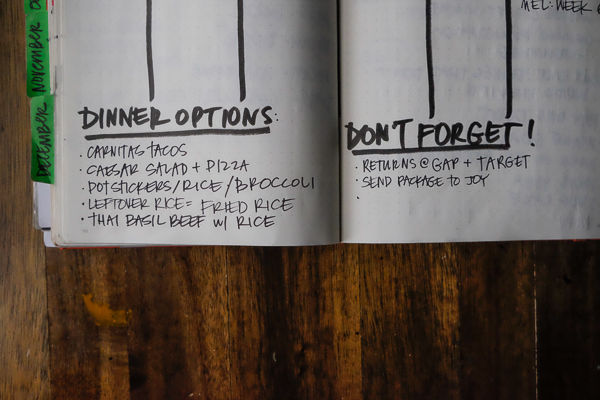 NOVEMBER
DECEMBER
DINNER OPTIONS:
· CARNITAS TACOS
· CAESAR SALAD + PIZZA
· POTSTICKERS/RICE/BROCCOLI
· LEFTOVER RICE = FRIED RICE
· THAI BASIL BEEF W/ RICE
MEL: WEEK
DON'T FORGET!
· RETURNS @ GAP + TARGET
· SEND PACKAGE TO JOY
·